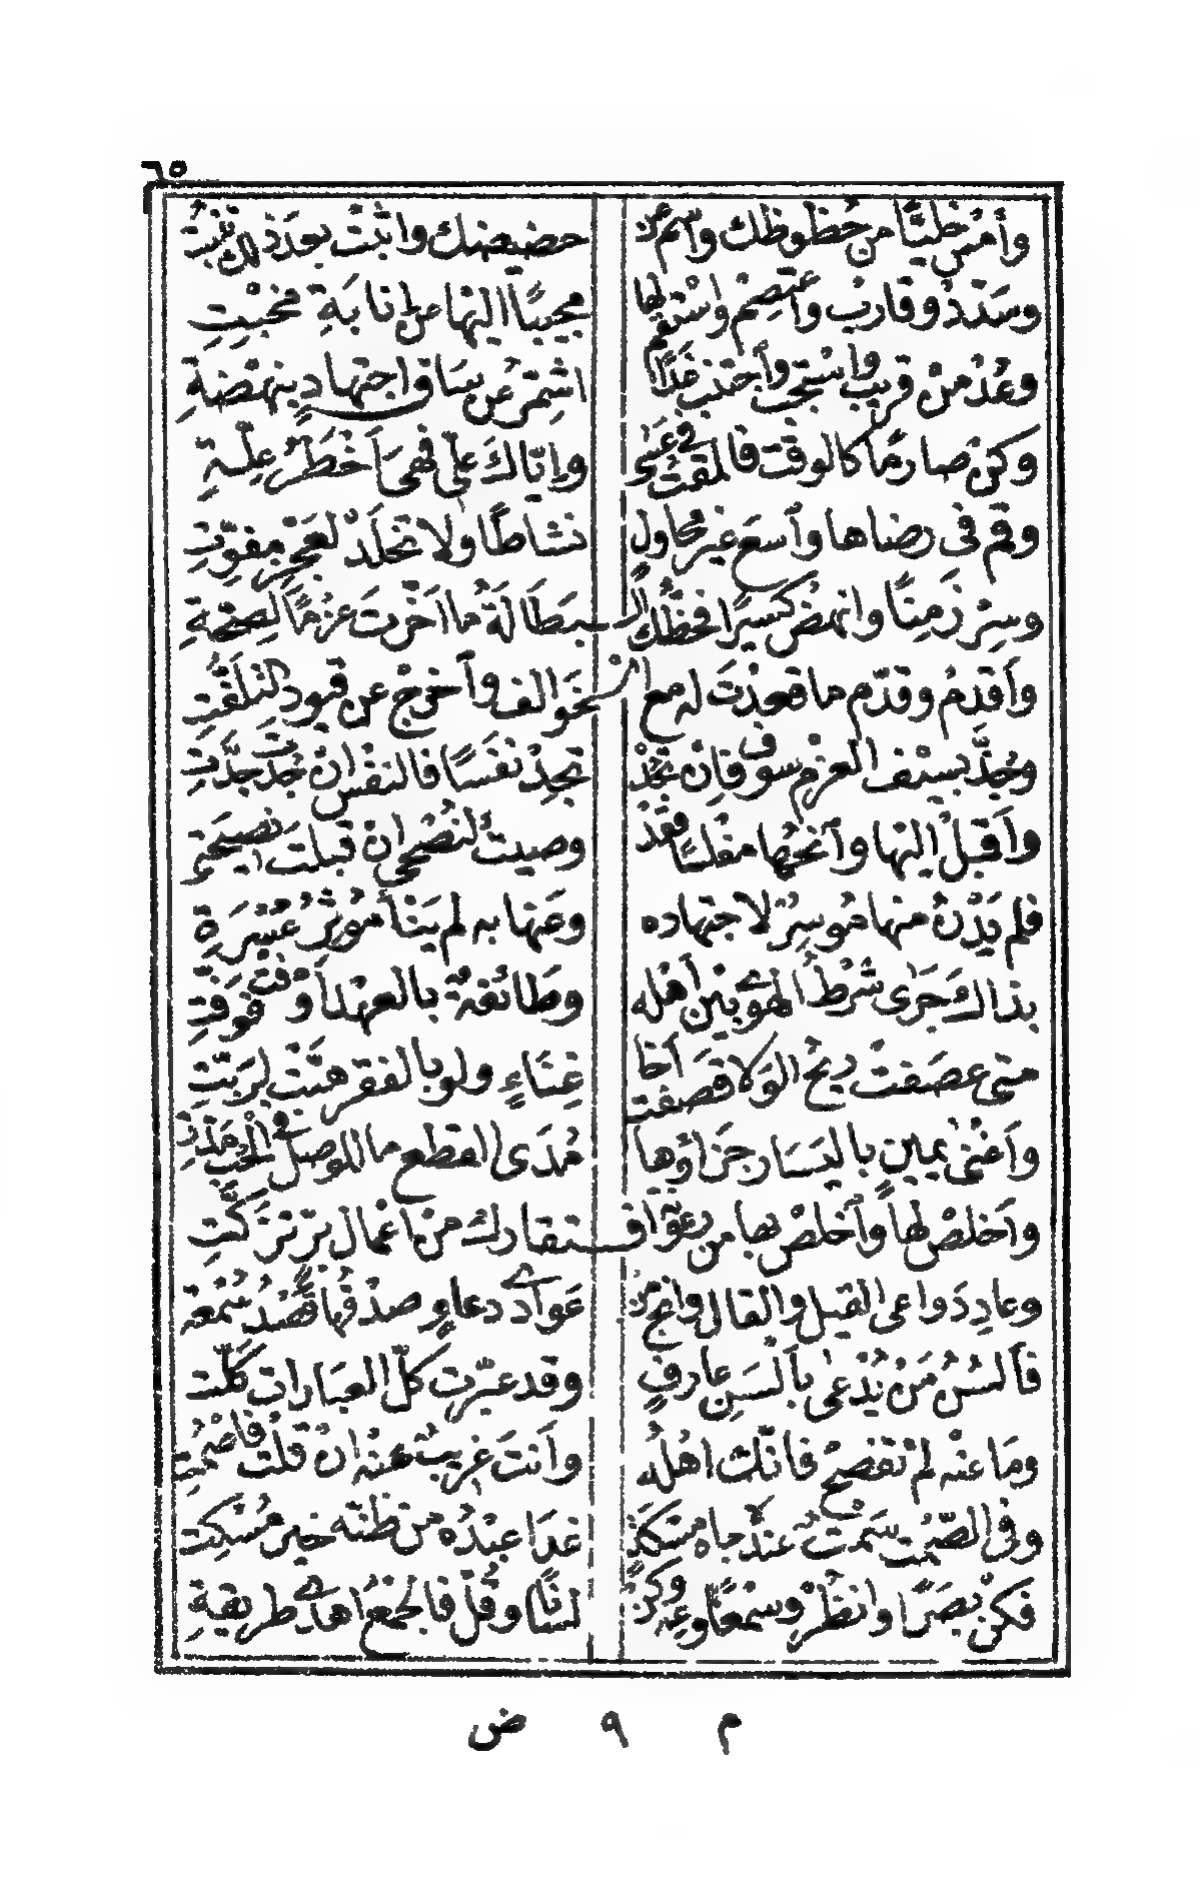 ٦٥
وأمس خليا من حظوظك واسم عن حضيضك واثبت بعد ذلك تثبت
وسدد وقارب واعتصم واستقم لها مجيبا اليها من إنابة مخبت
وعد من قريب واستجب واجتنب غدا اشمر عن ساق اجتهاد بنهضة
وكن صارما كالوقت فالمقت في عسى وإياك على فهي أخطر علة
وقم في رضاها واسع غير محاول نشاطا ولا تخلد لعجز مفوت
وسر زمنا وانهض كسيرا فحظك الـبطالة ما اخرت عزما لصحة
وأقدم وقدم ما قعدت له مع الـخوالف واخرج عن قيود التلفت
وجذ بسيف العزم سوف فإن تجد تجد نفسا فالنفس ان جدت جدت
وأقبل اليها وانحها مفلسا فقد وصيت لنصحى ان قبلت نصيحتى
فلم يدن منها موسر لاجتهاده وعنها به لم ينأ مؤثر عسرة
بذاك جرى شرط الهوى بين أهله وطائفة بالعهد أوفت فوفت
متى عصفت ريح الولا قصفت أخا غناء ولو بالفقر هبت لربت
وأغنى يمين باليسار جزاؤها مدى القطع ما للوصل في الحب مدت
وأخلص لها وأخلص بها من رعونة افـتقارك من اعمال بر تزكت
وعاد دواعى القيل والقال وانج من عوادى دعاو صدقها قصد سمعة
فألسن من يدعى بألسن عارف وقد عبرت كل العبارات كلت
وما عنه لم تفصح فانك اهله وأنت غريب عنه ان قلت فاصمت
وفى الصمت سمت عنده جاه مسكة غدا عبده من ظنه خير مسكت
فكن بصرا وانظر وسمعا وعه وكن لسانا وقل فالجمع اهدى طريقة
م ٩ ض